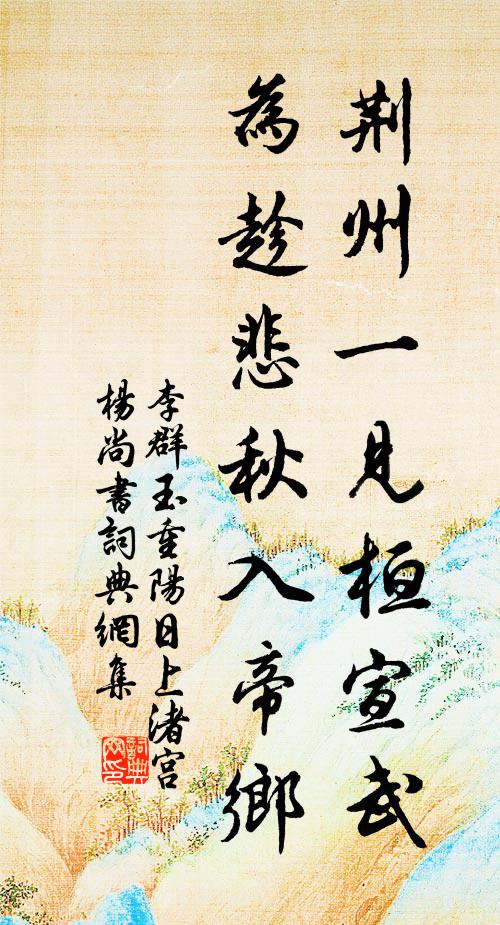 荆州一見桓宣武
為趁悲秋入帝鄉
李群玉重陽日上渚宮
楊尚書詞典網集
詞典